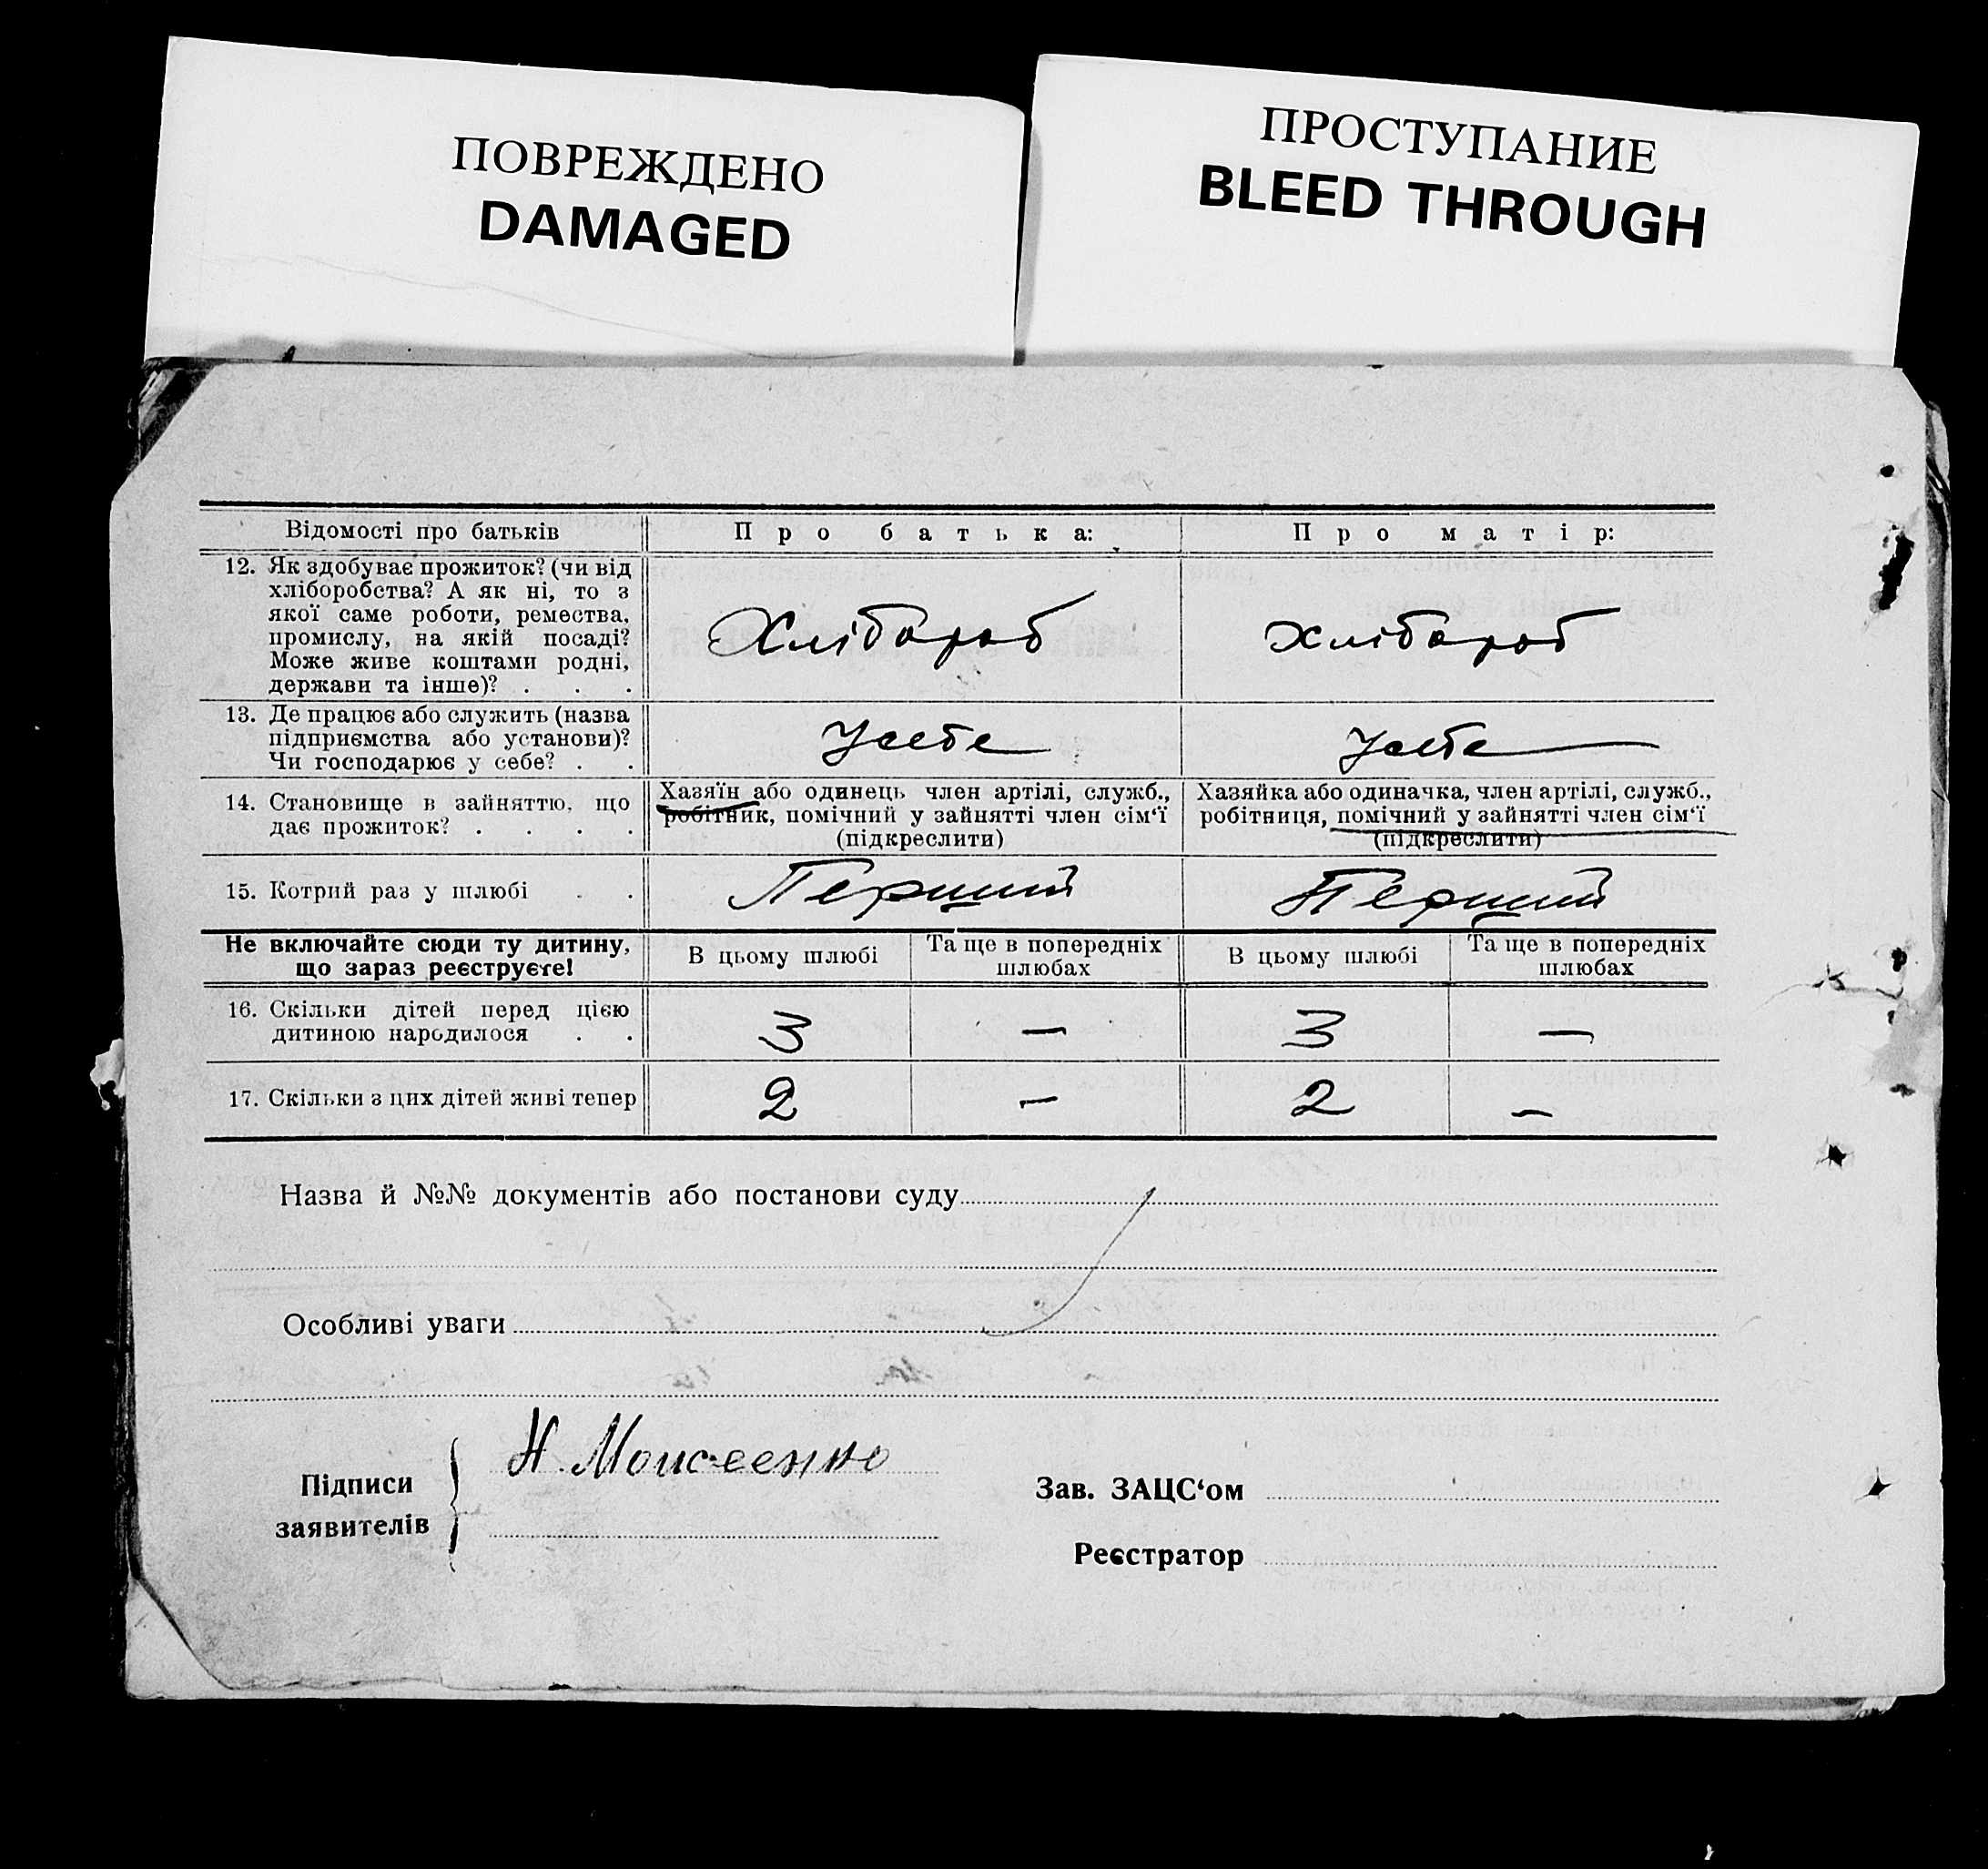 ПОВРЕЖДЕНО
DAMAGED
ПРОСТУПАНИЕ
BLEED THROUGH
Відомості про батьків
Про батька:
Про матір:
12. Як здобуває прожиток? (чи від
хліборобства? А як ні, то з
якої саме роботи, ремества,
промислу, на якій посаді?
Може живе коштами родні,
держави та інше)? . . .
Хлібороб
Хлібороб
13. Де працює або служить (назва
підприємства або установи)?
Чи господарює у себе? . .
У себе
У себе
14. Становище в зайняттю, що
дає прожиток? . . . .
Хазяїн або одинець член артілі, служб.,
робітник, помічний у зайнятті член сім‘ї
(підкреслити)
Хазяйка або одиначка, член артілі, служб.,
робітниця, помічний у зайнятті член сім‘ї
(підкреслити)
15. Котрий раз у шлюбі . .
Перший
Перший
Не включайте сюди ту дитину,
що зараз реєструєте!
В цьому шлюбі
Та ще в попередніх
шлюбах
В цьому шлюбі
Та ще в попередніх
шлюбах
16. Скільки дітей перед цією
дитиною народилося . .
3
—
3
—
17. Скільки з цих дітей живі тепер
2
—
2
—
Назва й №№ документів або постанови суду
Особливі уваги
Підписи
заявителів
Н. Моисеенко
Зав. ЗАЦС‘ом
Реєстратор